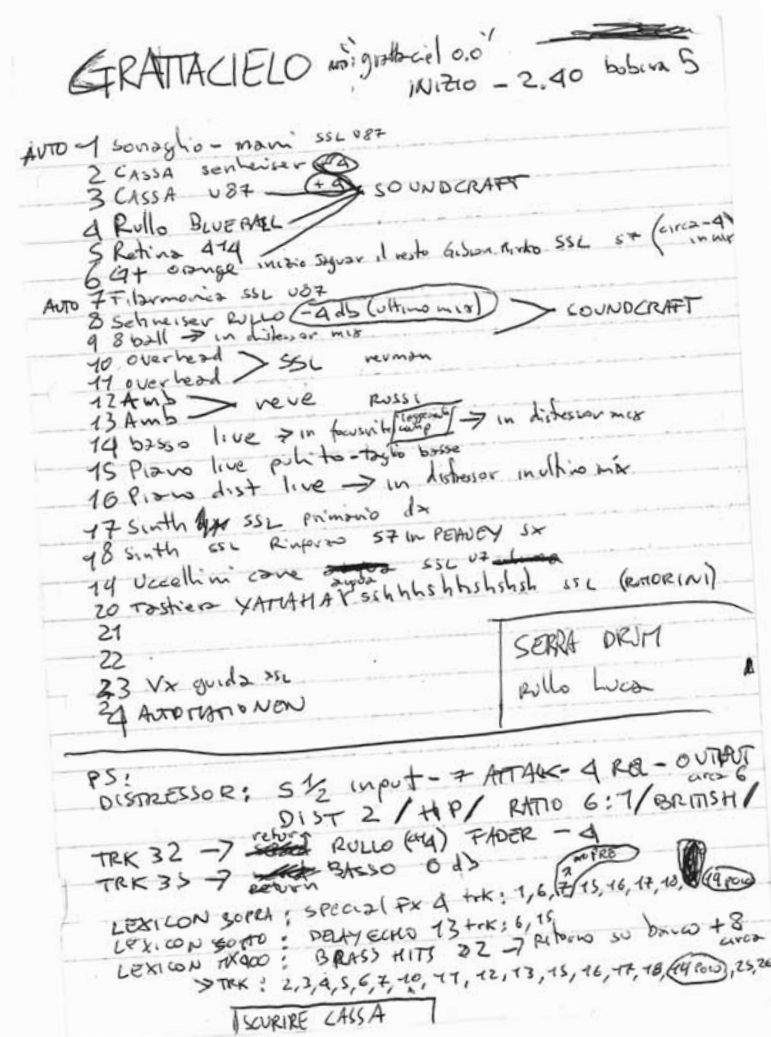 GRATTACIELO
INIZIO - 2.40 bobina 5
AUTO 1 Sonaglio - mani SSL U87
2 CASSA senheiser +4
3 CASSA U87 +4 SOUNDCRAFT
4 Rullo BLUEBALL
5 Retina 414
6 GT orange inizio Jaguar il resto Gibson Mirko SSL 57 (circa -4 in mix)
AUTO 7 Filarmonica SSL U87
8 Sehneiser RULLO -4 db (ultimo mix) SOUNDCRAFT
9 8 ball → in distessor mix
10 overhead
11 overhead SSL neuman
12 Amb
13 Amb neve RUSSI
14 basso live → in focusrite comp → in distessor mix
15 Piano live pulito - taglio basse
16 Piano dist live → in distessor in ultimo mix
17 Sinth SSL primario dx
18 sinth SSL Rinforzo 57 in PEAVEY SX
19 Uccellini cane acqua SSL U7
20 Tastiera YAMAHA sshhhshhshshsh SSL
21
22
23 Vx guida SSL
24 AUTOMATIONEN
SERRA DRUM
Rullo Luca
PS:
DISTRESSOR: 5 1/2 input - 7 ATTAK - 4 REL - OUTPUT circa 6
DIST 2 / HP / RATIO 6:1 / BRITISH /
TRK 32 → return RULLO (+4) FADER - 4
TRK 35 → return BASSO 0 db
LEXICON SOPRA: SPECIAL FX 4 trk: 1, 6, 7, 15, 16, 17, 18, 19 poco
LEXICON SOTTO: DELAY ECHO 13 trk: 6, 15
LEXICON MX400: BRASS HITS 22 → Ritorno su banco +8 circa
→ TRK: 2, 3, 4, 5, 6, 7, 10, 11, 12, 13, 15, 16, 17, 18, 19 poco, 25, 26
SCURIRE CASSA